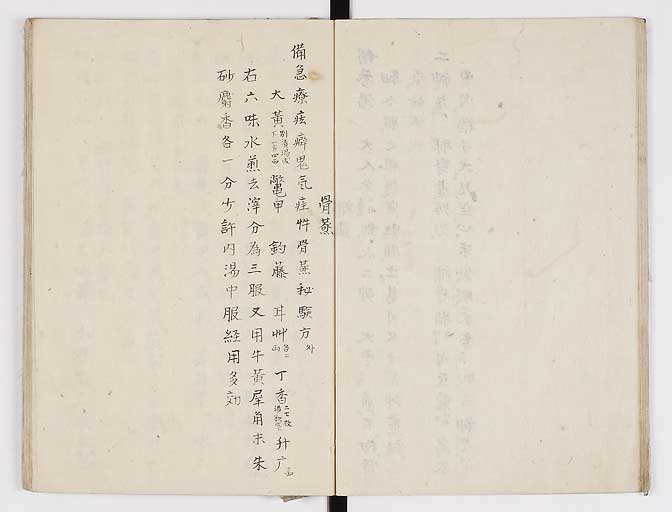 骨蒸
備急療痃癖鬼気疰忤骨蒸秘験方 外
大黄 別漬湯成下 鼈甲 釣藤 甘艸 各二両 丁香 二七枚 升广
右六味水煎去滓分為三服又用牛黄犀角末朱
砂麝香各一分少許内湯中服経用多効